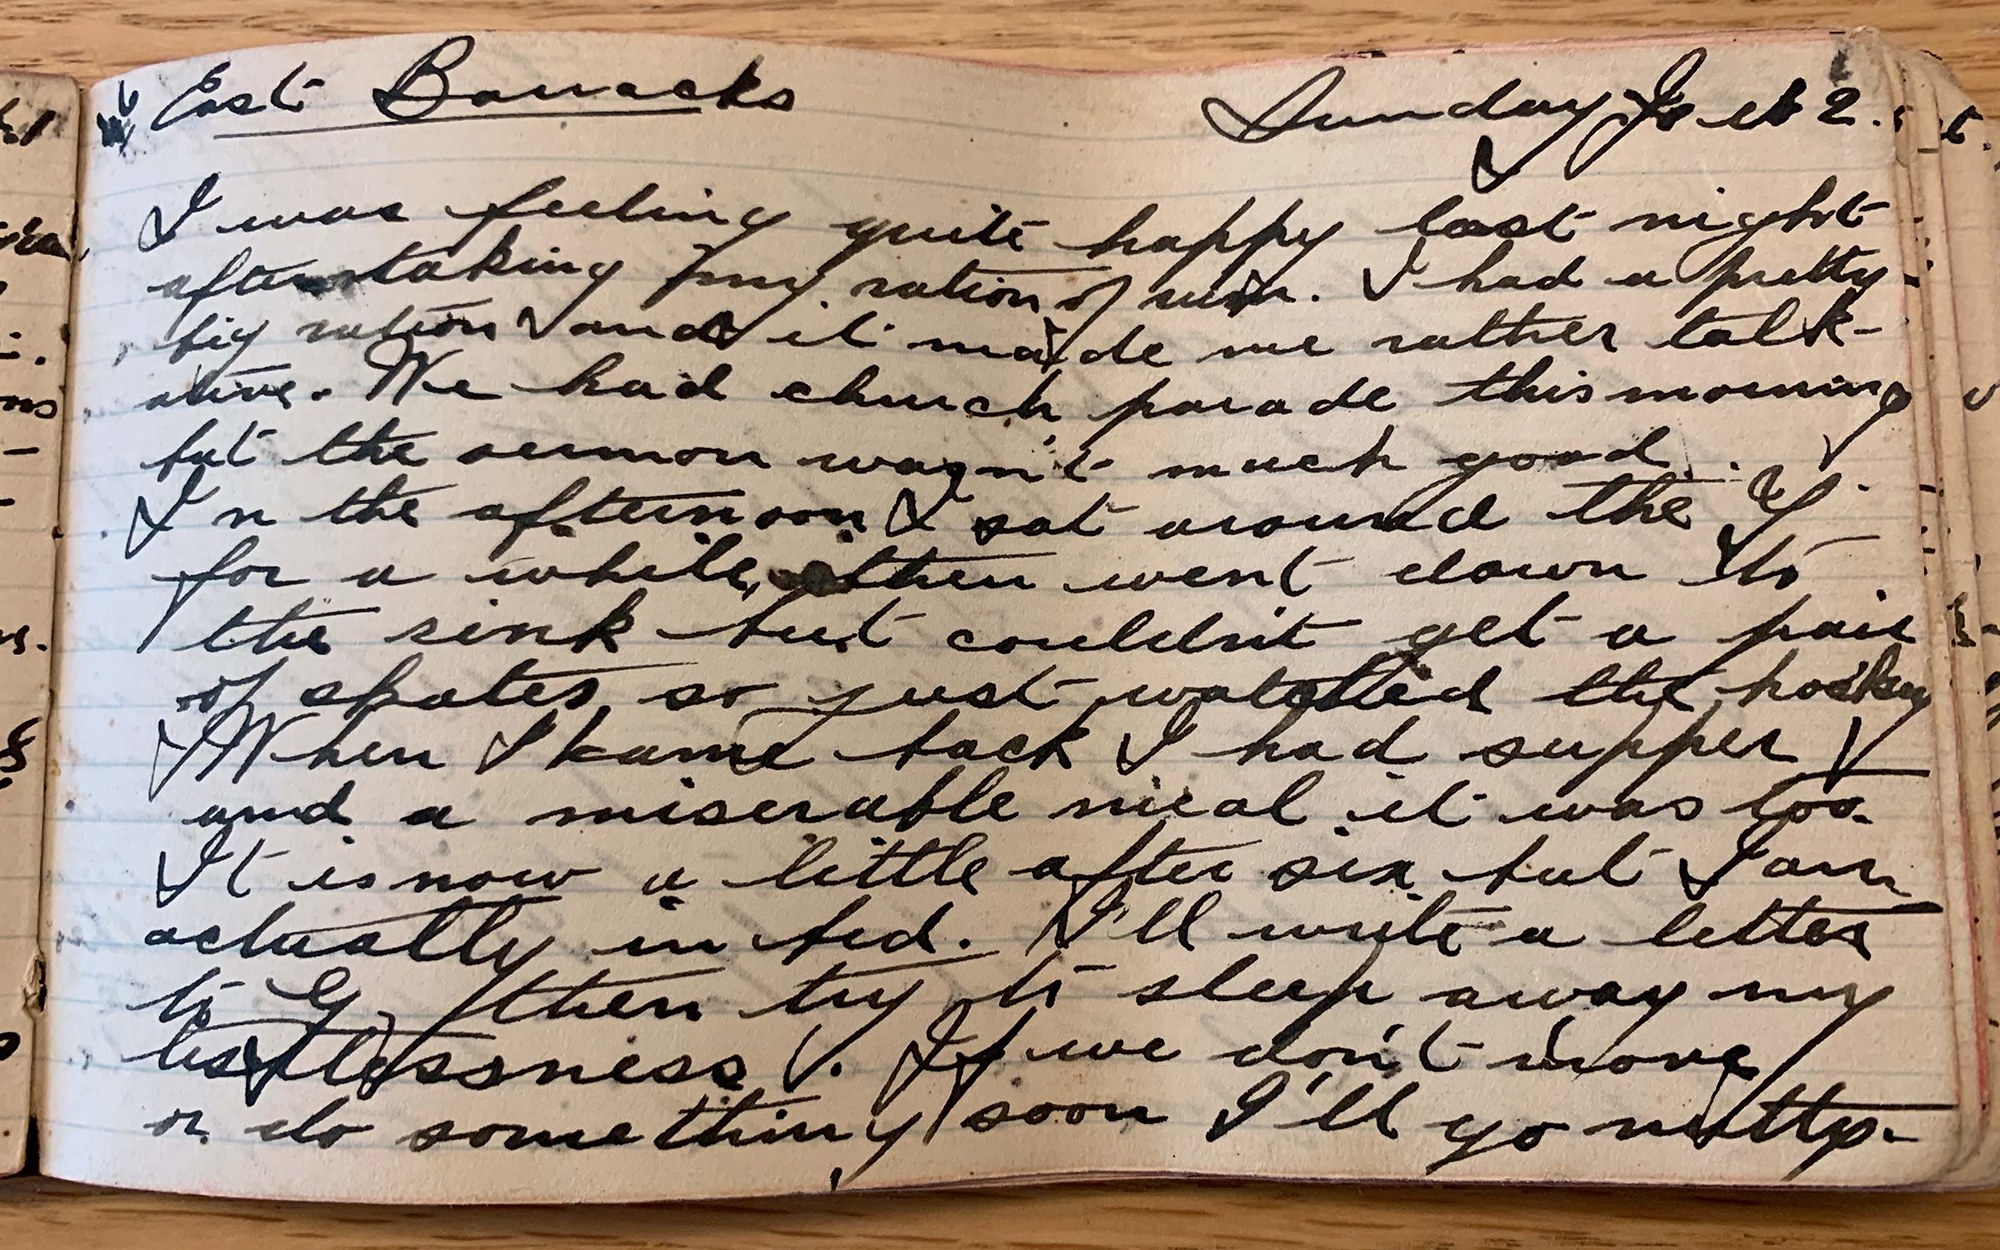 East Barracks Sunday 2.
I was feeling quite happy last night
after taking my ration of rum. I had a pretty
big ration and it made me rather talk-
ative. We had church parade this morning
but the sermon wasn't much good.
In the afternoon I sat around the Y.
for a while, then went down to
the rink but couldn't get a pair
of skates so just watched the hockey
When I came back I had supper
and a miserable meal it was too.
It is now a little after six but I am
actually in bed. I'll write a letter
to G, then try to sleep away my
listlessness. If we don't move
or do something soon I'll go nutty.